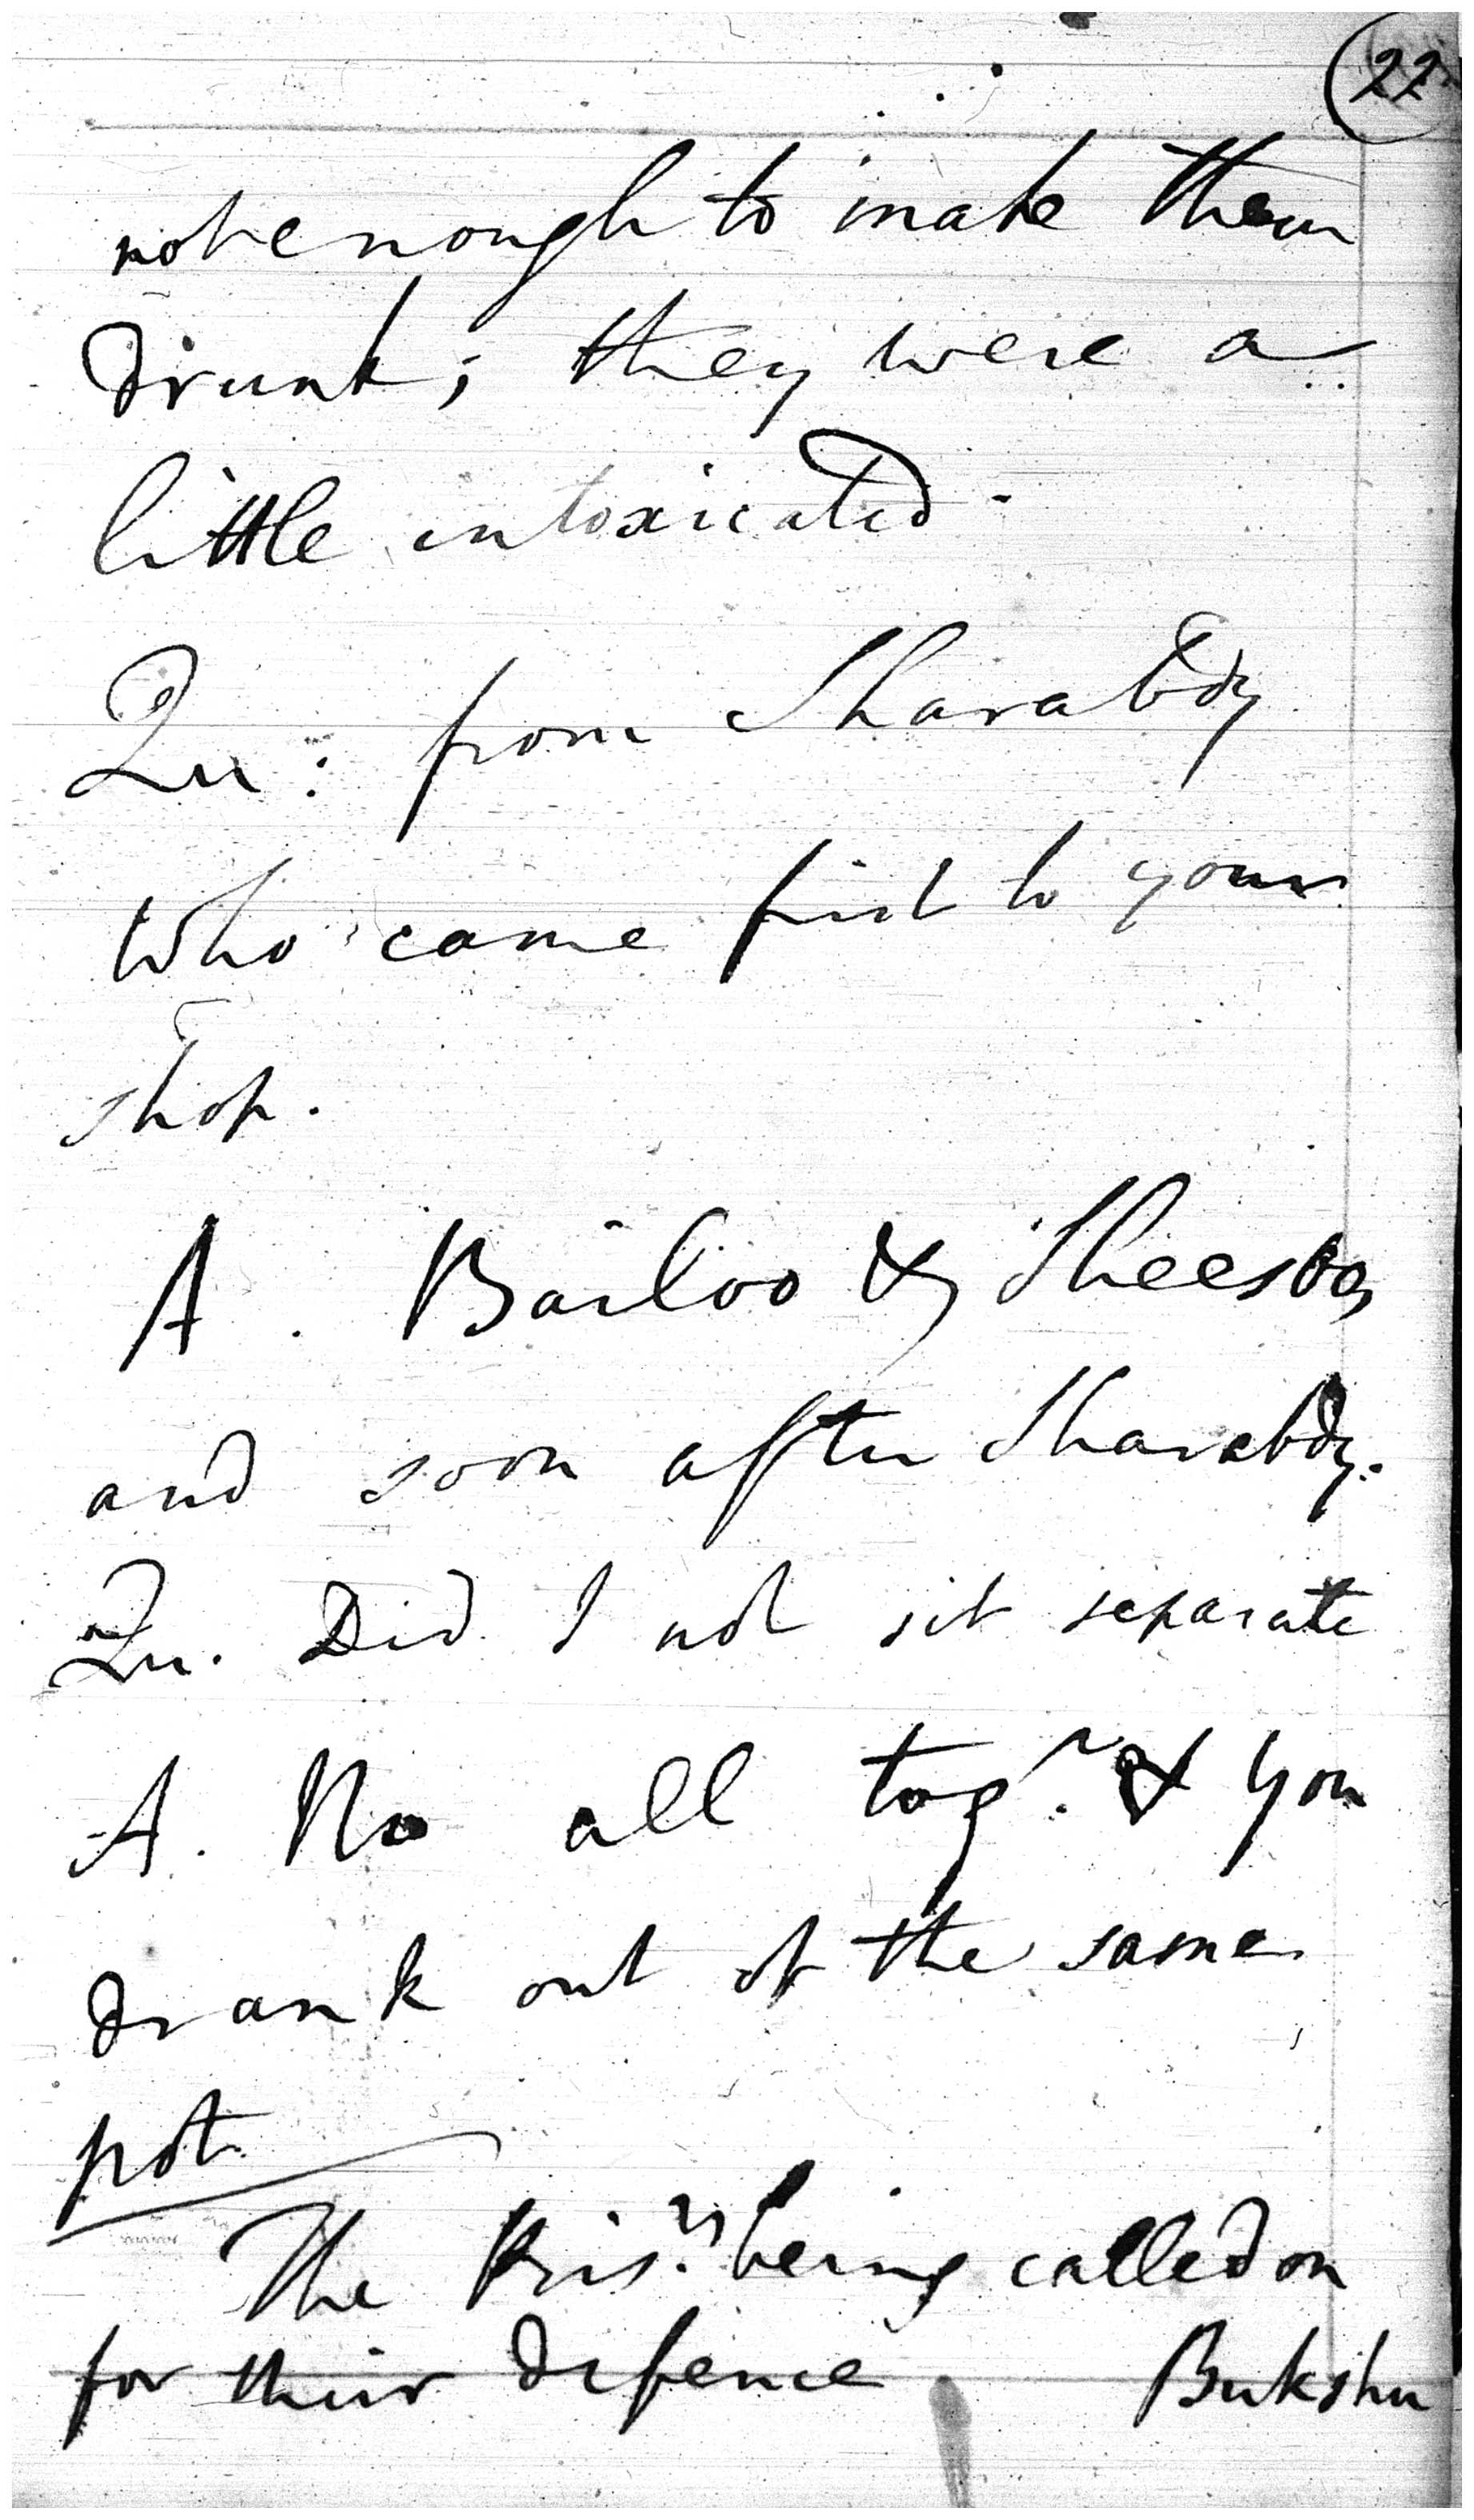 22
not enough to make them
drunk; they were a
little intoxicated -
Qu: from Sharabdy
who came first to your
shop.
A. Barloo & Sheesba
and soon after Sharabdy.
Qu. Did I not sit separate
A. No all togr. & you
drank out of the same
pot
The Prisrs. being called on
for their defence Bukshu